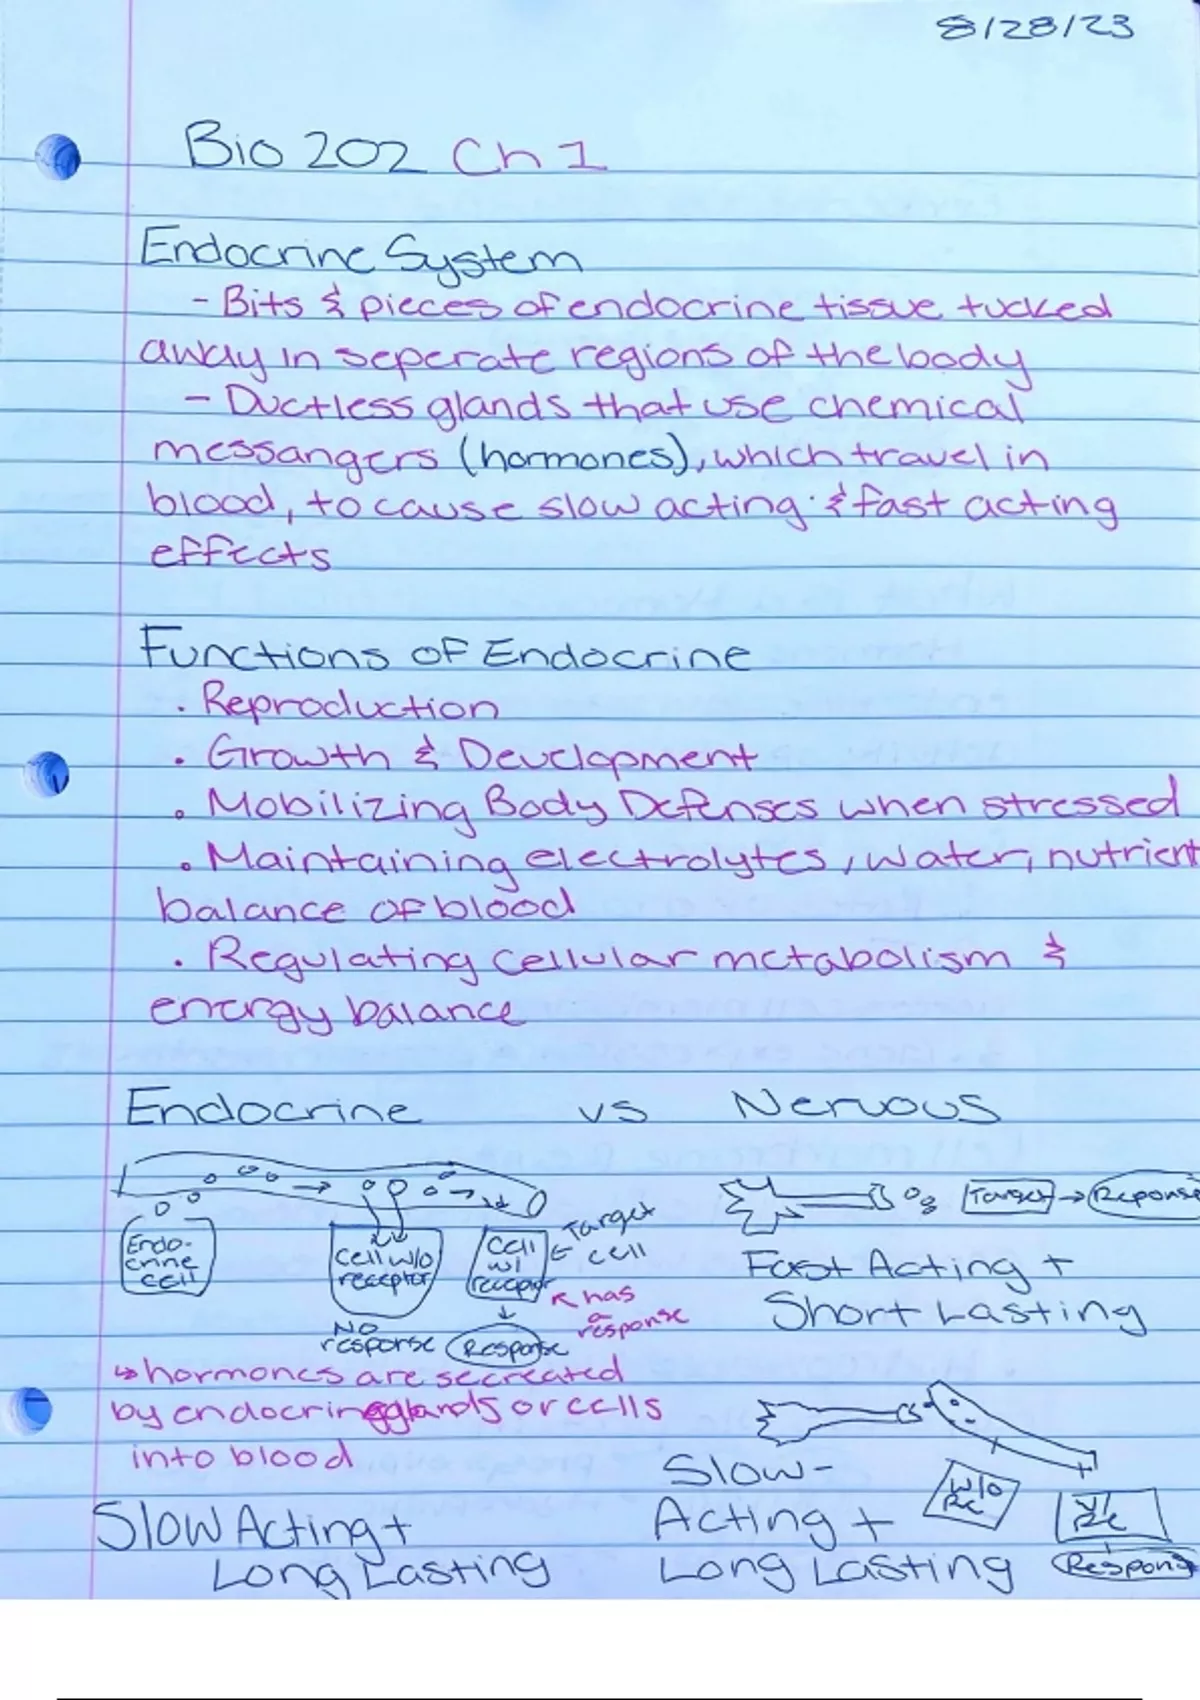 8/28/23
Bio 202 Ch 1
Endocrine System
- Bits & pieces of endocrine tissue tucked
away in seperate regions of the body
- Ductless glands that use chemical
messangers (hormones), which travel in
blood, to cause slow acting & fast acting
effects
Functions of Endocrine
· Reproduction
· Growth & Development
· Mobilizing Body Defenses when stressed
· Maintaining electrolytes, water, nutrient
balance of blood
· Regulating cellular metabolism &
energy balance
Endocrine vs Nervous
Endo-
crine
cell
Cell w/o
receptor
No
response
Cell
w/
receptor
Response
Target
cell
has
a
response
↳ hormones are secreated
by endocrine glands or cells
into blood
Slow Acting +
Long Lasting
Target → Reponse
Fast Acting +
Short Lasting
Slow-
Acting +
Long Lasting
w/o
Rc
w/
Rc
Respons